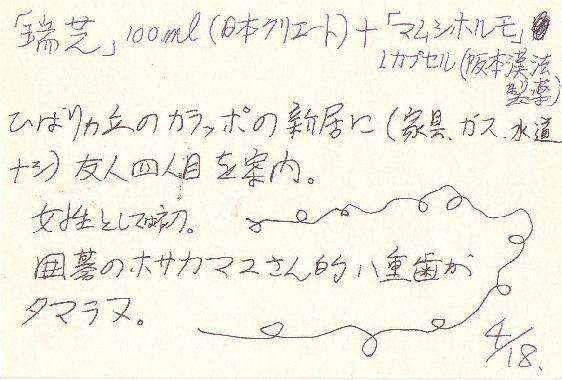 「瑞芝」100ml(日本クリエート)+「マムシホルモ」
1カプセル(阪本漢法
製薬)
ひばりヵ丘のカラッポの新居に(家具、ガス、水道
ナシ)友人四人目を案内。
女性としては初。
囲碁のホサカマユさん的八重歯が
タマラヌ。
4/18.